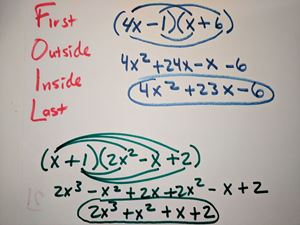 First
Outside
Inside
Last
(4x-1)(x+6)
4x²+24x-x-6
4x²+23x-6
(x+1)(2x²-x+2)
2x³-x²+2x+2x²-x+2
2x³+x²+x+2